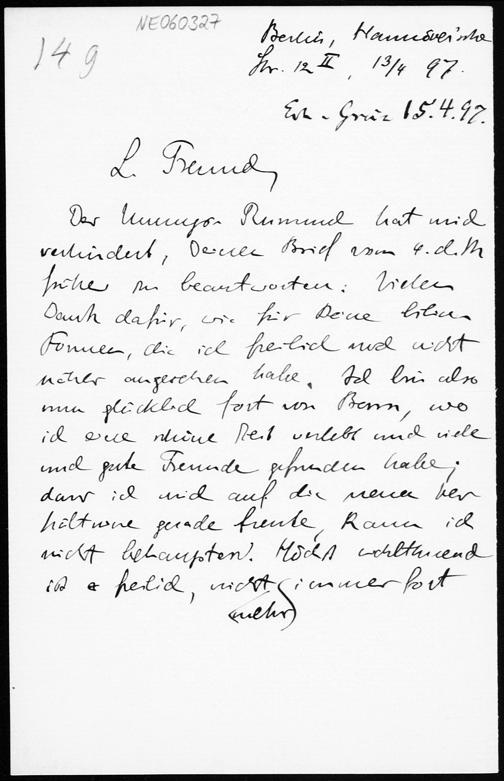 NE060327
149
Berlin, Hannöverische
Str. 12 II, 13/4 97.
Erh - Graz 15.4.97.
L. Freund,
Der Umzugs- Rummel hat mich
verhindert, Deinen Brief vom 4. d. M
früher zu beantworten. Vielen
Dank dafür, wie für Deine
Formen, die ich freilich noch nicht
näher angesehen habe. Ich bin also
nun glücklich fort von Bonn, wo
ich eine schöne Zeit verlebt und viele
und gute Freunde gefunden habe;
dass ich mich auf die neuen Ver
hältnisse gerade freute, kann ich
nicht behaupten. Höchst wohlthuend
ist es freilich, nicht immerfort
(mehr)